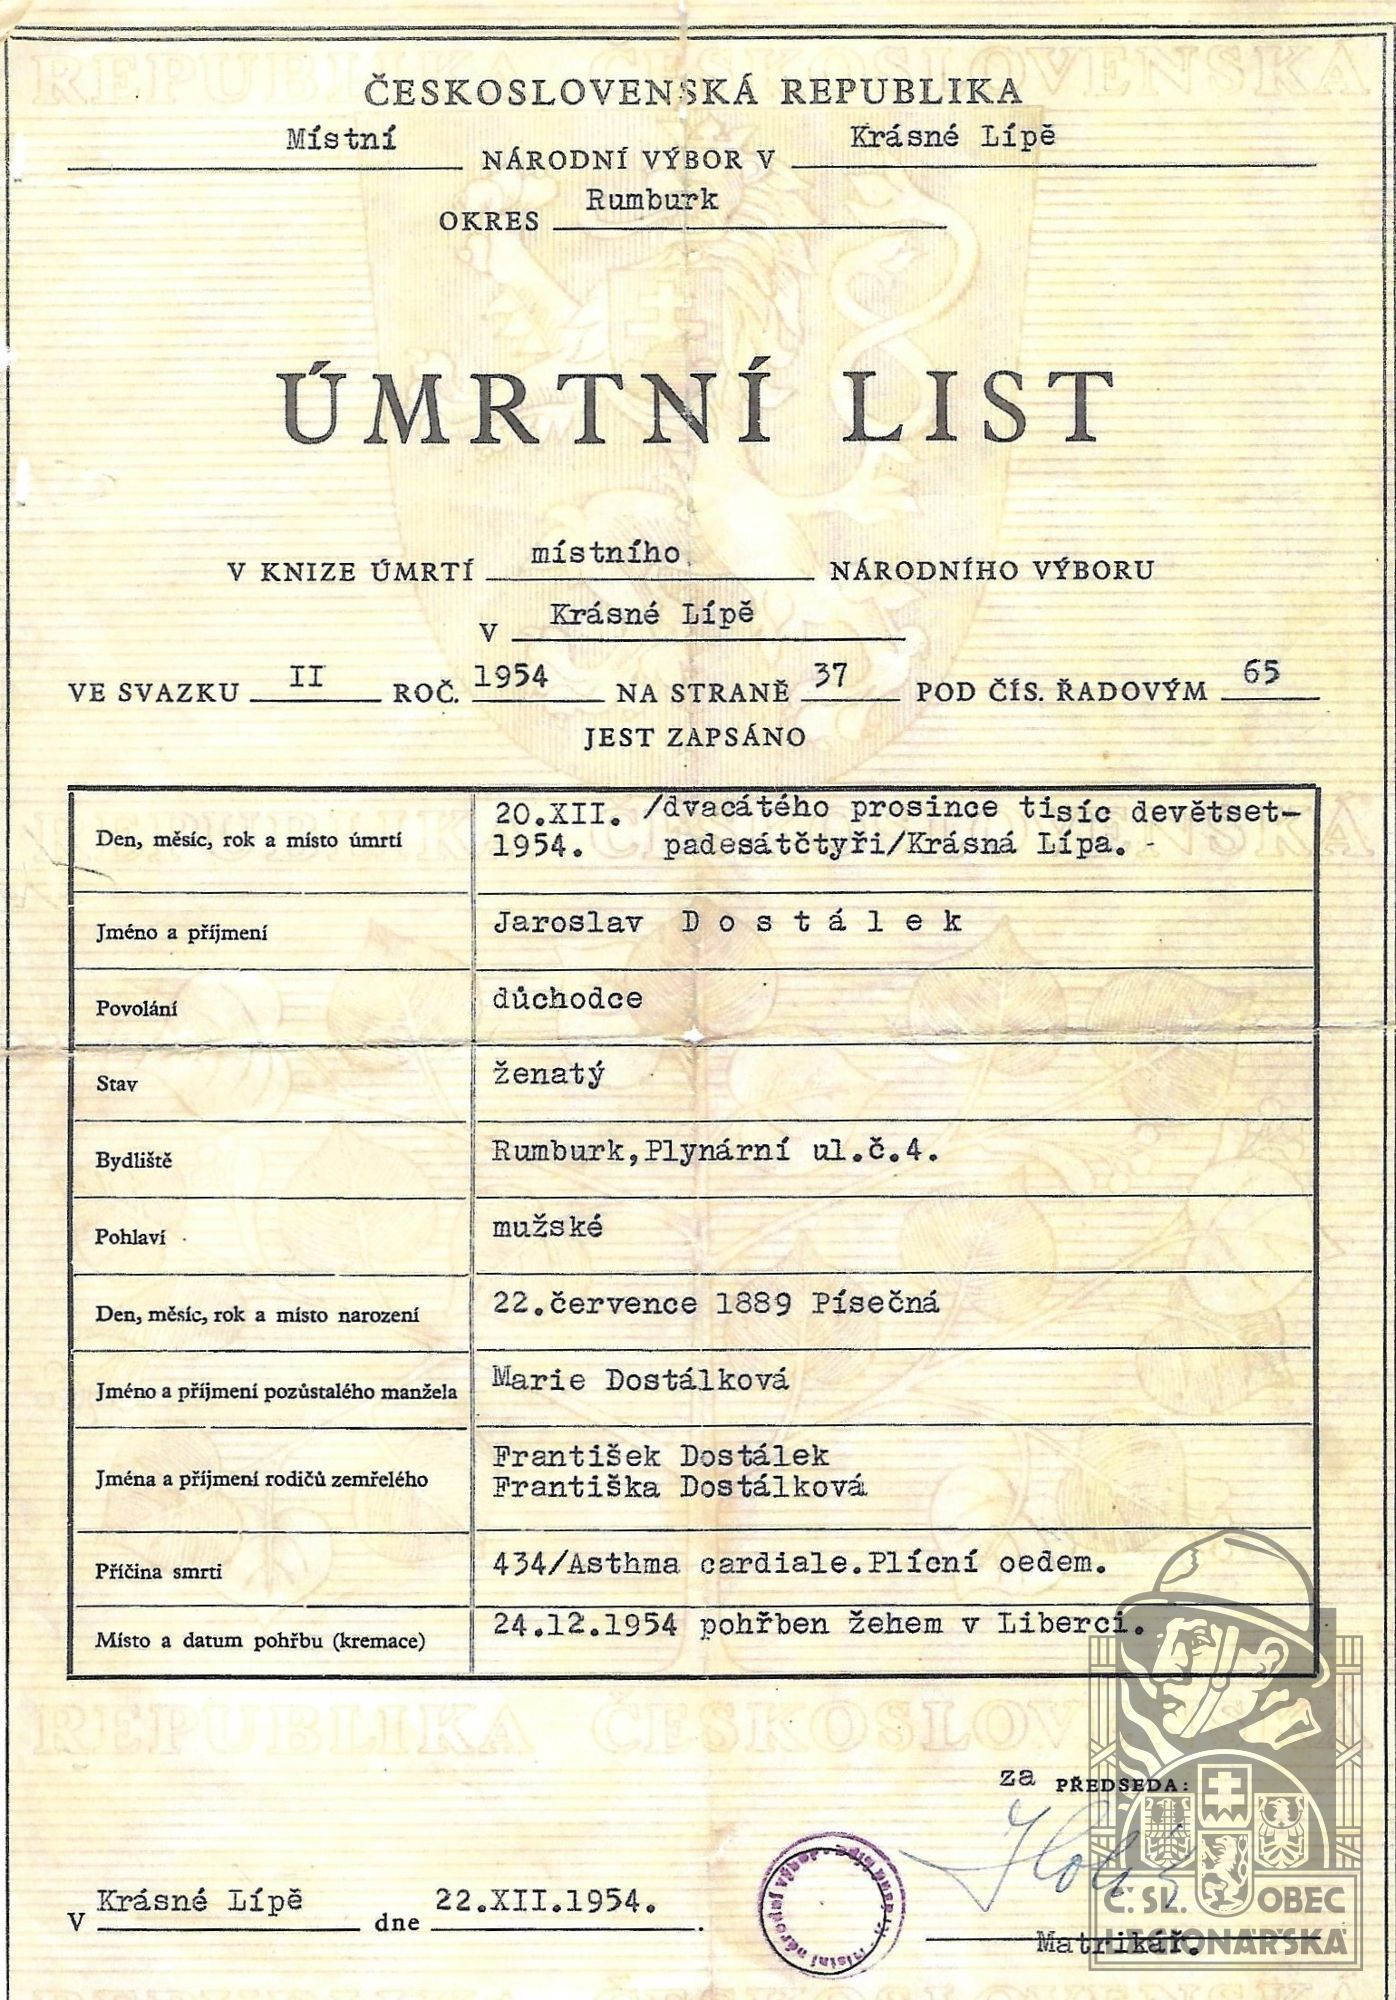 ČESKOSLOVENSKÁ REPUBLIKA
Místní NÁRODNÍ VÝBOR V Krásné Lípě
OKRES Rumburk
ÚMRTNÍ LIST
V KNIZE ÚMRTÍ místního NÁRODNÍHO VÝBORU
V Krásné Lípě
VE SVAZKU II ROČ. 1954 NA STRANĚ 37 POD ČÍS. ŘADOVÝM 65
JEST ZAPSÁNO
Den, měsíc, rok a místo úmrtí
20.XII. /dvacátého prosince tisíc devětset-
1954. padesátčtyři/Krásná Lípa. -
Jméno a příjmení Jaroslav D o s t á l e k
Povolání důchodce
Stav ženatý
Bydliště Rumburk,Plynární ul.č.4.
Pohlaví mužské
Den, měsíc, rok a místo narození 22.července 1889 Písečná
Jméno a příjmení pozůstalého manžela Marie Dostálková
Jména a příjmení rodičů zemřelého
František Dostálek
Františka Dostálková
Příčina smrti 434/Asthma cardiale.Plícní oedem.
Místo a datum pohřbu (kremace) 24.12.1954 pohřben žehem v Liberci.
REPUBLIKA ČESKOSLOVENSKÁ
za PŘEDSEDA:
V Krásné Lípě dne 22.XII.1954.
Místní národní výbor
Matrikář.
Č. SL. OBEC
LEGIONÁŘSKÁ